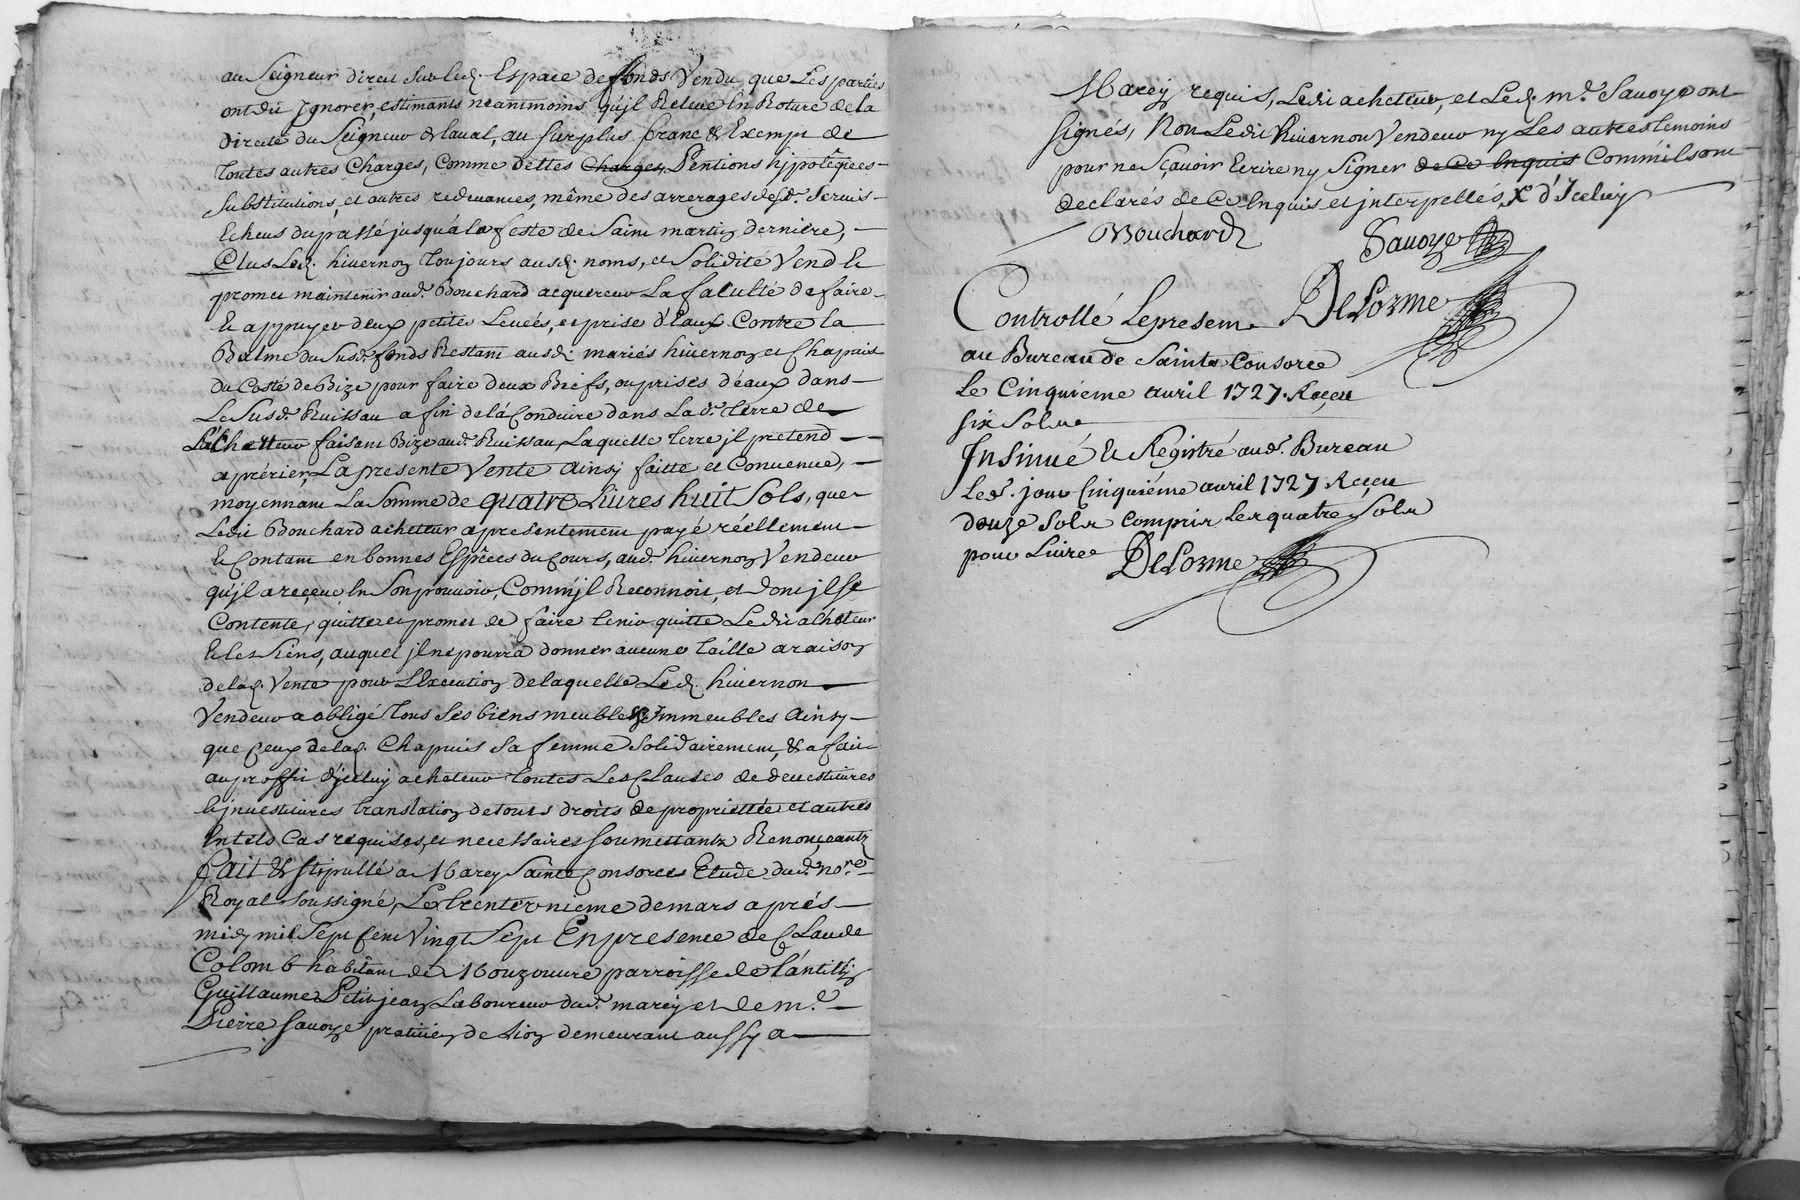 au Seigneur direct sur led. Espace de fonds Vendu que Les parties
ont dit Jgnorer, estimants néantmoins qu'jl Releve En Roture de la
directe du Seigneur de laval, au surplus franc & Exempt de
toutes autres Charges, Comme dettes Charges, Pentions hÿpotéquées
substitutions, et autres redevances, même des arrerages desd. servis
Echeus du passé jusqu'á la feste de Saint martin derniere,
Plus Led. hivernon toujours ausd. noms, et Solidité Vend Et
promet maintenir aud. Bouchard acquereur La faculté de faire
Et appuyer deux petites Levées, et prise d'Eaux Contre la
Balme du Susd. fonds Restant ausd. mariés hivernon et Chapuis
du Costé de Bize pour faire deux Biefs, ou prises d'éaux dans
Le Susd. Ruissau afin de lá Conduire dans Lad. terre de
L'achetteur faisant Bize aud. Ruissau, Laquelle terre jl pretend
aprérier, La presente Vente ainsy faitte et Convenue,
moyennant La Somme de quatre Livres huit Sols, que
Ledit Bouchard achetteur a presentement payé réellement
Et Contant en bonnes Espêces du Cours, aud. hivernon Vendeur
qu'jl a reçeue En Son pouvoir, Comm'jl Reconnoit, et dont jl se
Contente, quitte et promet de faire tenir quitte Ledit achéteur
Et les Siens, auquel jl ne pourra donner aucune taille a raison
de lad. Vente pour L'Execution de laquelle Led. hivernon
Vendeur a obligé tous Ses biens meubles & Jmmeubles Ainsy
que Ceux de lad. Chapuis Sa femme Solidairement, & a fait
au proffit d'jcelluy acheteur toutes Les Clauses de devestitures
Et jnvestitures translation de tous droits de propriettée et autres
En tels Cas requises, et necessaires Soumettants Renonçeants
Fait & stipullé a Marcy Sainte Consorce Etude dud. no.re
Royal Soussigné, Le trente unieme de mars aprés
midy mil Sept Cent Vingt Sept En presence de Claude
Colomb habitant de Mouzouvre parroisse de
Guillaume Petitjean Laboureur dud. marcy et de m.e
Pierre Savoye praticien de Lion demeurant aussy a
Marcy requis, Ledit acheteur, et Led. m.e Savoye ont
signés, Non Ledit hivernon Vendeur ny Les autres témoins
pour ne Sçavoir Ecrire ny Signer de Ce Enquis Comm'ils ont
declarés de Ce Enquis et jnterpellés, d'Jceluy
Bouchard
Savoye
DeLorme
Controllé Le present
au Bureau de Sainte Consorce
le Cinquieme avril 1727. Reçeu
six Sols
Jnsinué Et Registré aud. Bureau
Led. jour Cinquiéme avril 1727. Reçeu
douze Sols compris Les quatre Sols
pour Livre
DeLorme